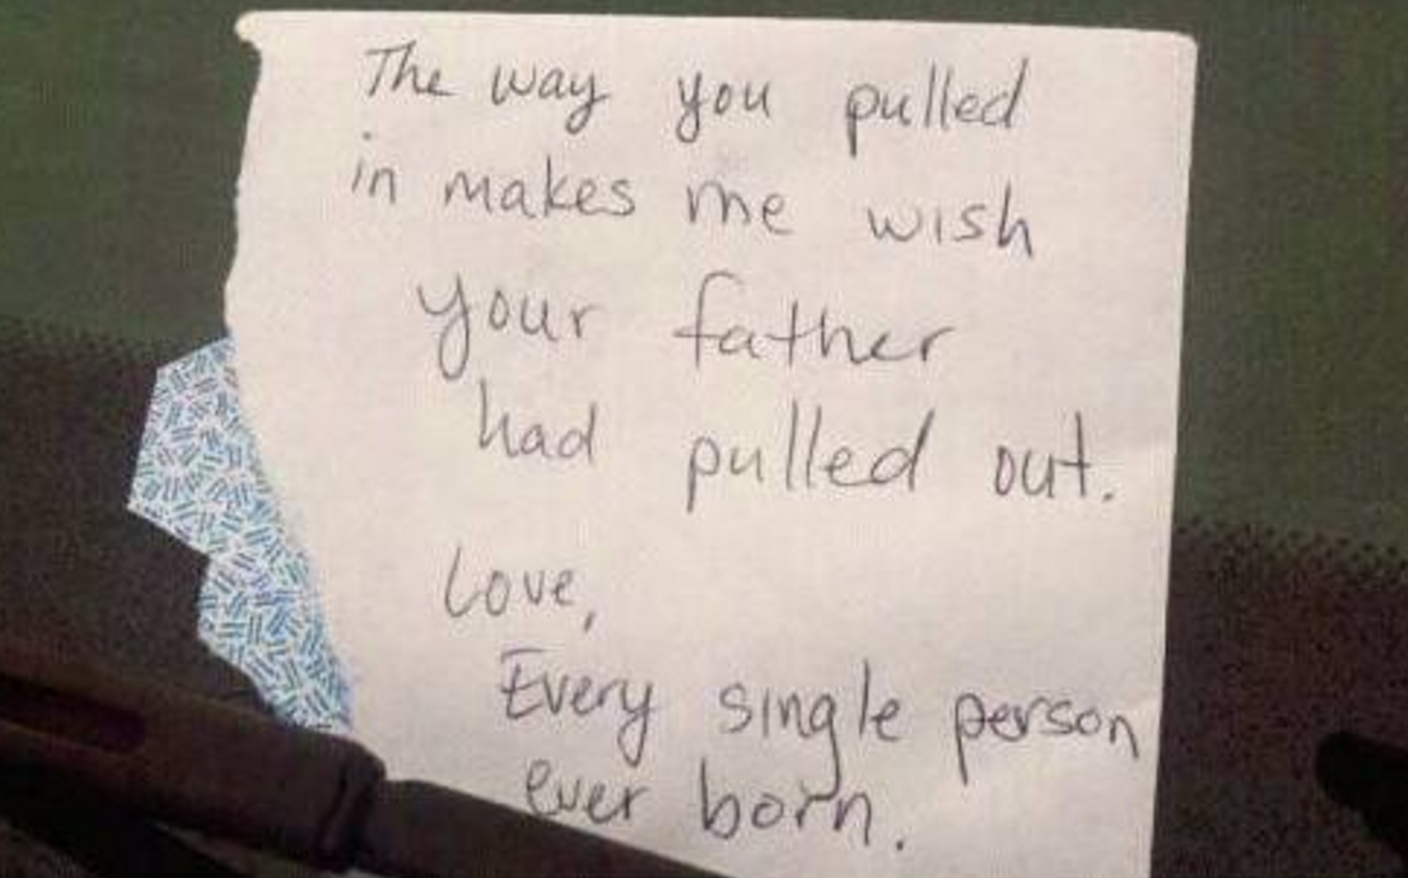 The way you pulled
in makes me wish
your father
had pulled out.
Love,
Every single person
ever born.